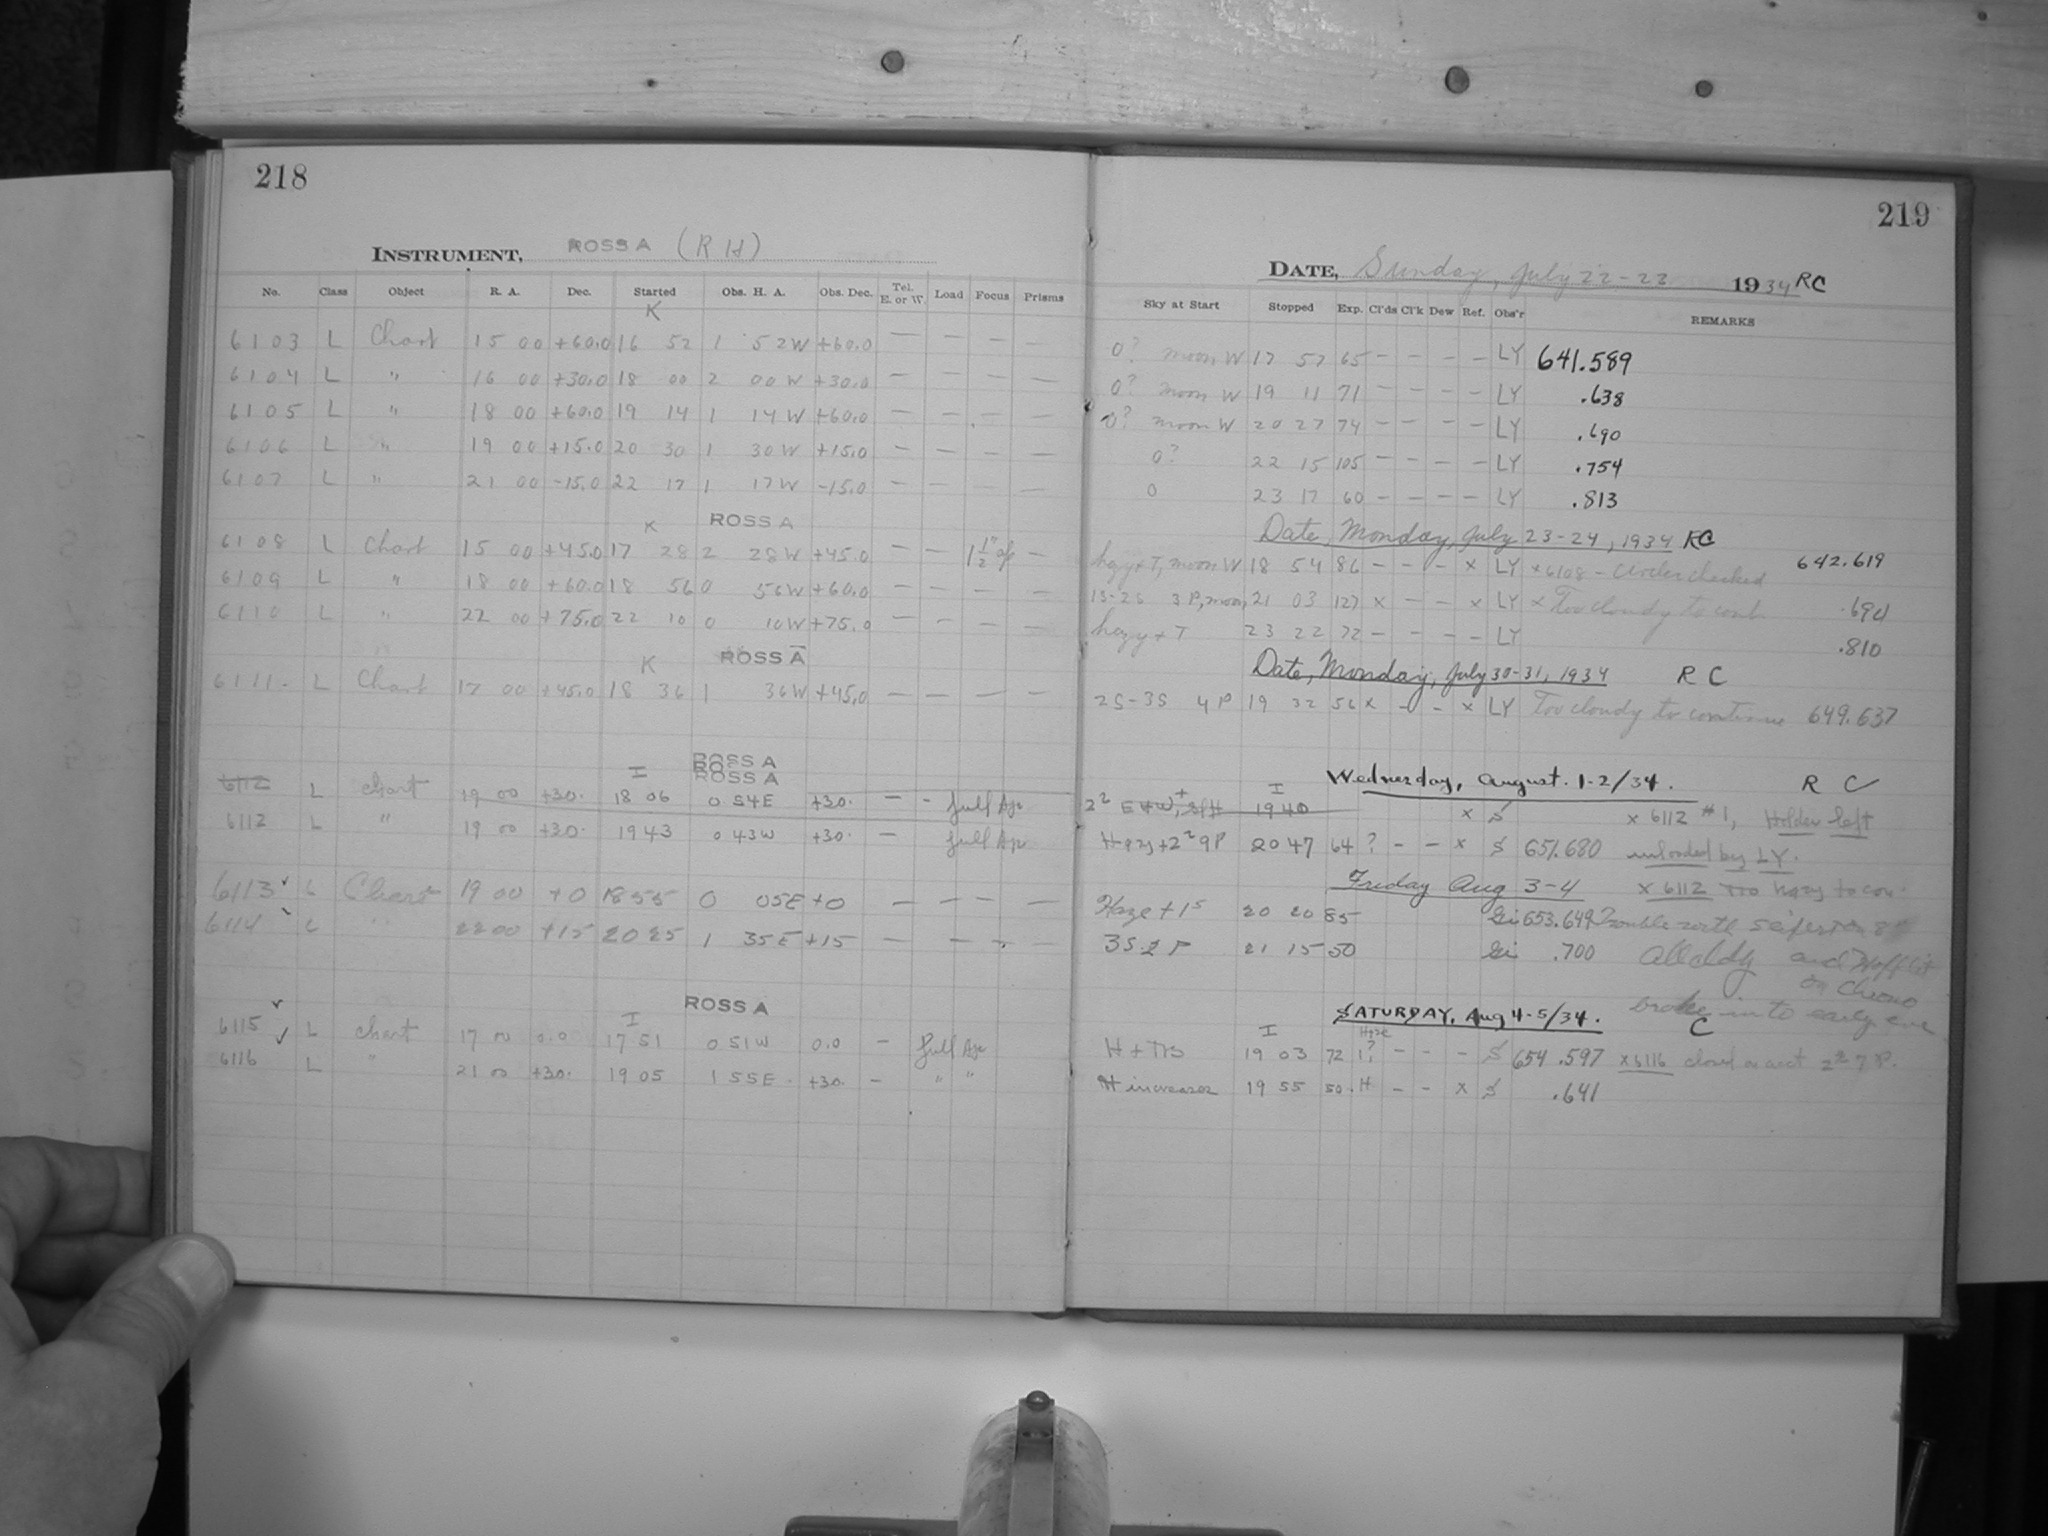 218
INSTRUMENT, ROSS A (RH)
No. Class Object R. A. Dec. Started Obs. H. A. Obs. Dec. Tel. E. or W. Load Focus Prisms
K
6103 L Chart 15 00 +60.0 16 52 1 52W +60.0 — — — —
6104 L " 16 00 +30.0 18 00 2 00W +30.0 — — — —
6105 L " 18 00 +60.0 19 14 1 14W +60.0 — — — —
6106 L " 19 00 +15.0 20 30 1 30W +15.0 — — — —
6107 L " 21 00 -15.0 22 17 1 17W -15.0 — — — —
K ROSS A
6108 L Chart 15 00 +45.0 17 28 2 28W +45.0 — — 1½" —
6109 L " 18 00 +60.0 18 56 0 56W +60.0 — — — —
6110 L " 22 00 +75.0 22 10 0 10W +75.0 — — — —
K ROSS A
6111 L Chart 17 00 +45.0 18 36 1 36W +45.0 — — — —
ROSS A
I ROSS A
6112 L chart 19 00 +30. 18 06 0 54E +30. — - full Ap
6112 L " 19 00 +30. 19 43 0 43W +30. — full Ap
6113 L Chart 19 00 +0 18 55 0 05E +0 — — — —
6114 L " 22 00 +15 20 25 1 35E +15 — — — —
ROSS A
I
6115 L chart 17 00 0.0 17 51 0 51W 0.0 — full Ap
6116 L " 21 00 +30. 19 05 1 55E +30. — " "
219
DATE, Sunday, July 22-23 1934 RC
Sky at Start Stopped Exp. Cl'ds Cl'k Dew Ref. Obs'r REMARKS
0? moon W 17 57 65 — — — — LY 641.589
0? moon W 19 11 71 — — — — LY .638
0? moon W 20 27 74 — — — — LY .690
0? 22 15 105 — — — — LY .754
0 23 17 60 — — — — LY .813
Date, Monday, July 23-24, 1934 RC
hazy+T, moon W 18 54 86 — — — x LY x6108 - Under checked 642.619
1S-2S 3P, moon, 21 03 127 x — — x LY x Too cloudy to cont .694
hazy + T 23 22 72 — — — — LY .810
Date, Monday, July 30-31, 1934 R C
2S-3S 4P 19 32 56 x — — x LY Too cloudy to continue 649.637
I Wednesday, August. 1-2/34. R C
19 40 x S x 6112 #1, Holder left
Hazy+2² 9P 20 47 64 ? — — x S 651.680 unloaded by LY.
Friday Aug 3-4 x 6112 Too hazy to con.
Haze + 1S 20 20 85 Gi 653.649 Trouble with
3S 2P 21 15 50 Gi .700 All cldy and
on Chrono
SATURDAY, Aug 4-5/34. C broke in to early eve
I Haze
H + Trs 19 03 72 1? — — — S 654.597 x6116 closed on acct 2² 7P.
H increases 19 55 50. H — — x S .641